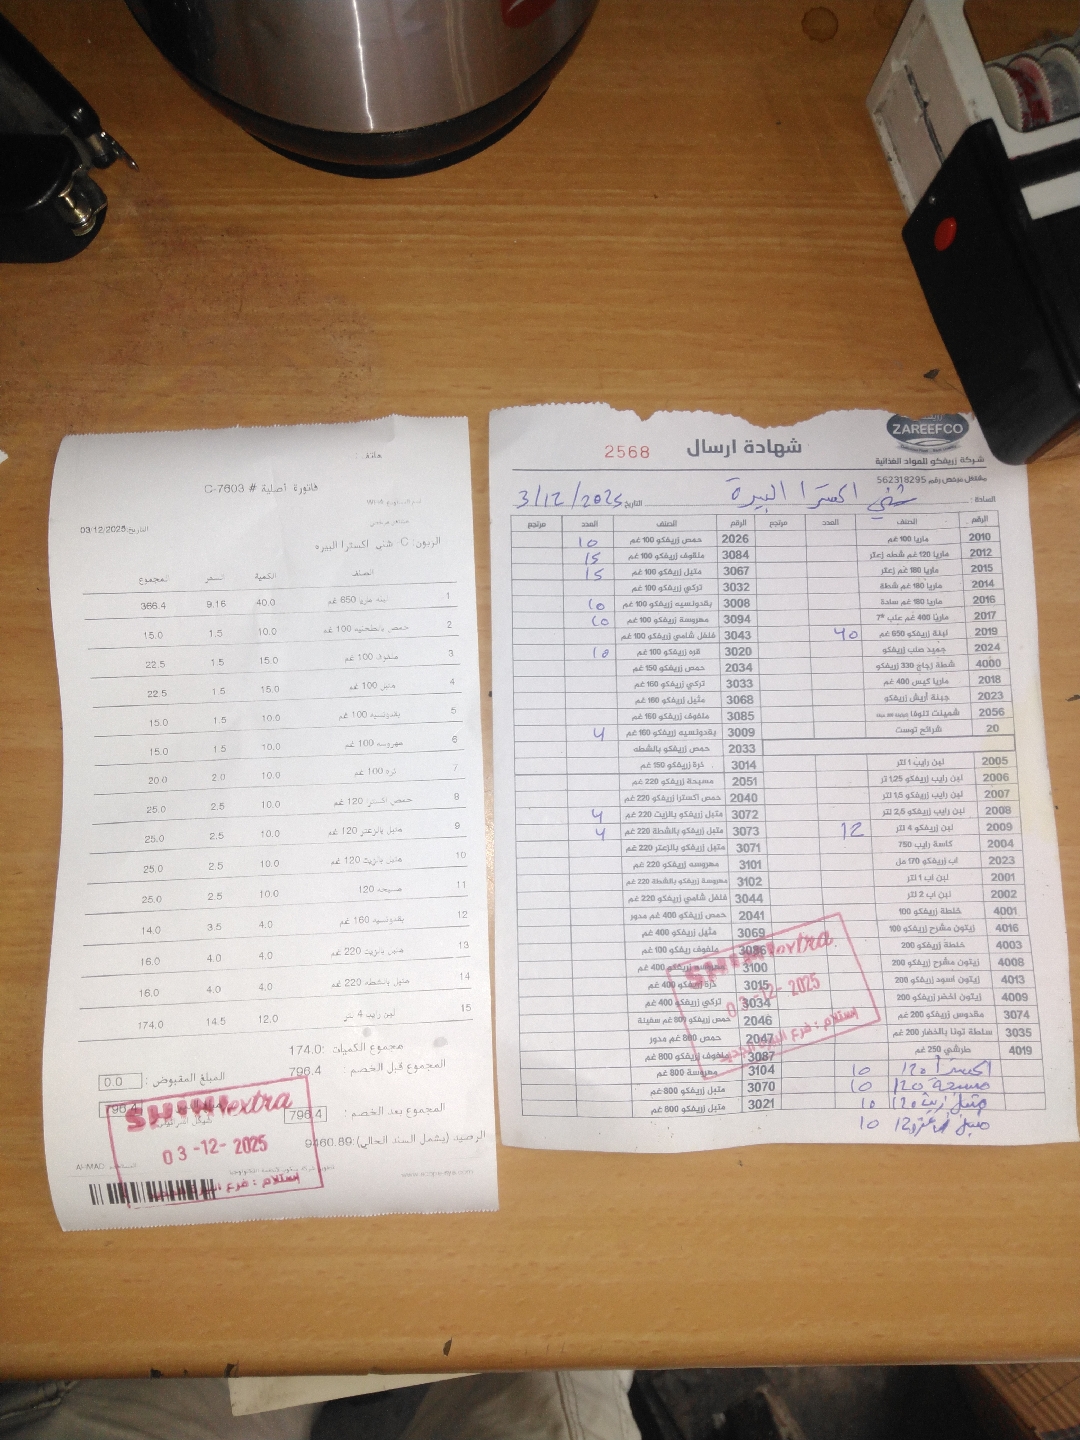 هاتف :
فاتورة أصلية # C-7603
التاريخ:03/12/2025
الزبون: C- شني اكسترا البيره
الصنف الكمية السعر المجموع
1 650 غم 40.0 9.16 366.4
2 حمص بالطحينه 100 غم 10.0 1.5 15.0
3 ملفوف 100 غم 15.0 1.5 22.5
4 متبل 100 غم 15.0 1.5 22.5
5 بقدونسيه 100 غم 10.0 1.5 15.0
6 مهروسه 100 غم 10.0 1.5 15.0
7 ذره 100 غم 10.0 2.0 20.0
8 حمص اكسترا 120 غم 10.0 2.5 25.0
9 متبل بالزعتر 120 غم 10.0 2.5 25.0
10 متبل بالزيت 120 غم 10.0 2.5 25.0
11 مسبحه 120 10.0 2.5 25.0
12 بقدونسيه 160 غم 4.0 3.5 14.0
13 متبل بالزيت 220 غم 4.0 4.0 16.0
14 متبل بالشطه 220 غم 4.0 4.0 16.0
15 لبن رايب 4 لتر 12.0 14.5 174.0
مجموع الكميات :174.0
المجموع قبل الخصم : 796.4
المبلغ المقبوض : 0.0
المجموع بعد الخصم : 796.4
796.4
الرصيد (يشمل السند الحالي):9460.89
AHMAD
SHINI extra
03-12-2025
استلام : فرع البيرة الجديد
ZAREEFCO
شهادة ارسال
2568
شركة زريفكو للمواد الغذائية
مشتغل مرخص رقم 562318295
السادة : شني اكسترا البيرة
التاريخ 3/12/2025
الرقم الصنف العدد مرتجع الرقم الصنف العدد مرتجع
2010 ماريا 100 غم 2026 حمص زريفكو 100 غم 10
2012 ماريا 120 غم شطه زعتر 3084 ملفوف زريفكو 100 غم 15
2015 ماريا 180 غم زعتر 3067 متبل زريفكو 100 غم 15
2014 ماريا 180 غم شطة 3032 تركي زريفكو 100 غم
2016 ماريا 180 غم سادة 3008 بقدونسيه زريفكو 100 غم 10
2017 ماريا 400 غم علب 3094 مهروسة زريفكو 100 غم 10
2019 لبنة زريفكو 650 غم 40 3043 فلفل شامي زريفكو 100 غم
2024 جميد صلب زريفكو 3020 ذره زريفكو 100 غم 10
4000 شطة زجاج 330 زريفكو 2034 حمص زريفكو 150 غم
2018 ماريا كيس 400 غم 3033 تركي زريفكو 160 غم
2023 جبنة أريش زريفكو 3068 متبل زريفكو 160 غم
2056 شمينت تنوفا 3085 ملفوف زريفكو 160 غم
20 شرائح توست 3009 بقدونسيه زريفكو 160 غم 4
2033 حمص زريفكو بالشطه
2005 لبن رايب 1 لتر 3014 ذرة زريفكو 150 غم
2006 لبن رايب زريفكو 1,25 لتر 2051 مسبحة زريفكو 220 غم
2007 لبن رايب زريفكو 1,5 لتر 2040 حمص اكسترا زريفكو 220 غم
2008 لبن رايب زريفكو 2,5 لتر 3072 متبل زريفكو بالزيت 220 غم 4
2009 لبن زريفكو 4 لتر 12 3073 متبل زريفكو بالشطة 220 غم 4
2004 كاسة رايب 750 3071 متبل زريفكو بالزعتر 220 غم
2023 اب زريفكو 170 مل 3101 مهروسه زريفكو 220 غم
2001 لبن اب 1 لتر 3102 مهروسة زريفكو بالشطة 220 غم
2002 لبن اب 2 لتر 3044 فلفل شامي زريفكو 220 غم
4001 خلطة زريفكو 100 2041 حمص زريفكو 400 غم مدور
4016 زيتون مشرح زريفكو 100 3069 متبل زريفكو 400 غم
4003 خلطة زريفكو 200 3086 ملفوف زريفكو 100 غم
4008 زيتون مشرح زريفكو 200 3100 مهروسه زريفكو 400 غم
4013 زيتون اسود زريفكو 200 3015 ذرة زريفكو 400 غم
4009 زيتون اخضر زريفكو 200 3034 تركي زريفكو 400 غم
3074 مقدوس زريفكو 200 غم 2046 حمص زريفكو 800 غم سفينة
3035 سلطة تونا بالخضار 200 غم 2047 حمص 800 غم مدور
4019 طرشي 250 غم 3087 ملفوف زريفكو 800 غم
اكسترا 120 10 3104 مهروسة 800 غم
مسبحة 120 10 3070 متبل زريفكو 800 غم
متبل زيت 120 10 3021 متبل زريفكو 800 غم
متبل زعتر 120 10
SHINI extra
03-12-2025
استلام : فرع البيرة الجديد